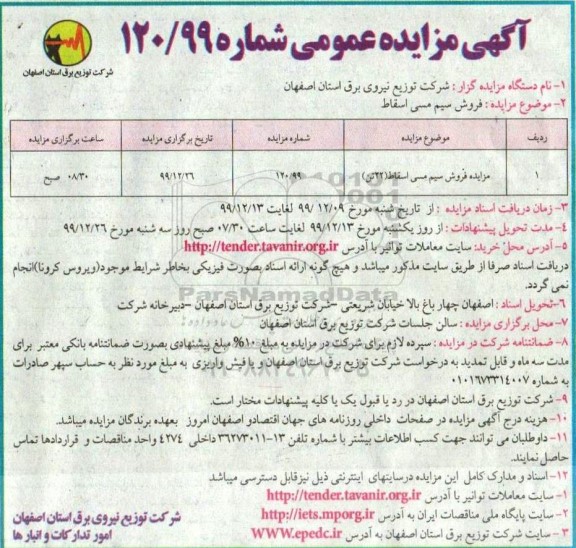 آگهی مزایده عمومی شماره ۱۲۰/۹۹
شرکت توزیع برق استان اصفهان
۱- نام دستگاه مزایده گزار : شرکت توزیع نیروی برق استان اصفهان
۲- موضوع مزایده : فروش سیم مسی اسقاط
ردیف موضوع مزایده شماره مزایده تاریخ برگزاری مزایده ساعت برگزاری مزایده
۱ مزایده فروش سیم مسی اسقاط(۳۲تن) ۱۲۰/۹۹ ۹۹/۱۲/۲۶ ۰۸/۳۰ صبح
۳- زمان دریافت اسناد مزایده : از تاریخ شنبه مورخ ۹۹/۱۲/۰۹ لغایت ۹۹/۱۲/۱۳
۴- مدت تحویل پیشنهادات : از روز یکشنبه مورخ ۹۹/۱۲/۱۳ لغایت ساعت ۰۷/۳۰ صبح روز سه شنبه مورخ ۹۹/۱۲/۲۶
۵- آدرس محل خرید: سایت معاملات توانیر با آدرس http://tender.tavanir.org.ir
دریافت اسناد صرفا از طریق سایت مذکور میباشد و هیچ گونه ارائه اسناد بصورت فیزیکی بخاطر شرایط موجود(ویروس کرونا)انجام
نمی گردد.
۶-تحویل اسناد : اصفهان چهار باغ بالا خیابان شریعتی –شرکت توزیع برق استان اصفهان –دبیرخانه شرکت
۷- محل برگزاری مزایده : سالن جلسات شرکت توزیع برق استان اصفهان
۸- ضمانتنامه شرکت در مزایده : سپرده لازم برای شرکت در مزایده به مبلغ ۱۰% مبلغ پیشنهادی بصورت ضمانتنامه بانکی معتبر برای
مدت سه ماه و قابل تمدید به درخواست شرکت توزیع برق استان اصفهان و یا فیش واریزی به مبلغ مورد نظر به حساب سپهر صادرات
به شماره ۰۱۰۱۶۷۳۳۱۴۰۰۷
۹- شرکت توزیع برق استان اصفهان در رد یا قبول یک یا کلیه پیشنهادات مختار است.
۱۰- هزینه درج آگهی مزایده در صفحات داخلی روزنامه های جهان اقتصادو اصفهان امروز بعهده برندگان مزایده میباشد.
۱۱- داوطلبان می توانند جهت کسب اطلاعات بیشتر با شماره تلفن ۱۳-۳۶۲۷۳۰۱۱ داخلی ۴۲۷۴ واحد مناقصات و قراردادها تماس
حاصل نمایند.
۱۲- اسناد و مدارک کامل این مزایده درسایتهای اینترنتی ذیل نیزقابل دسترسی میباشد
۱- سایت معاملات توانیر با آدرس http://tender.tavanir.org.ir
۲- سایت پایگاه ملی مناقصات ایران به آدرس http://iets.mporg.ir
۳- سایت شرکت توزیع برق استان اصفهان به آدرس WWW.epedc.ir
شرکت توزیع نیروی برق استان اصفهان
امور تدارکات و انبار ها
ParsNamadData